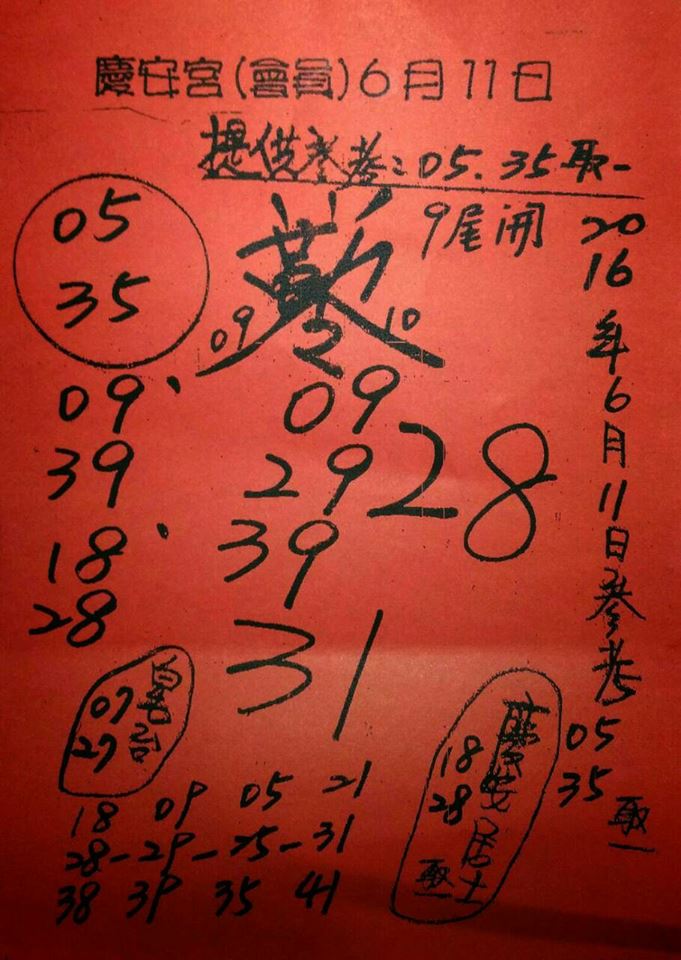 慶安宮(會員)6月11日
提供參考:05.35取一
9尾開
05
35
09 2 10
09、
39
18、
28
09
29
39
28
31
2016年6月11日參考
05
35
取一
07
27
18 09 05 21
28-29-25-31
38 39 35 41
慶安居士
18
28
取一